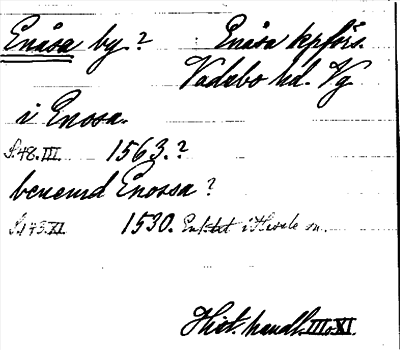 Enåsa by? Enåsa kpförs.
Vadsbo hd. Vg
i Enosa.
S.48.III. 1563.?
benemd Enossa?
S.143.XI. 1530. i Hasle sn.
Hist. handl. III o. XI.